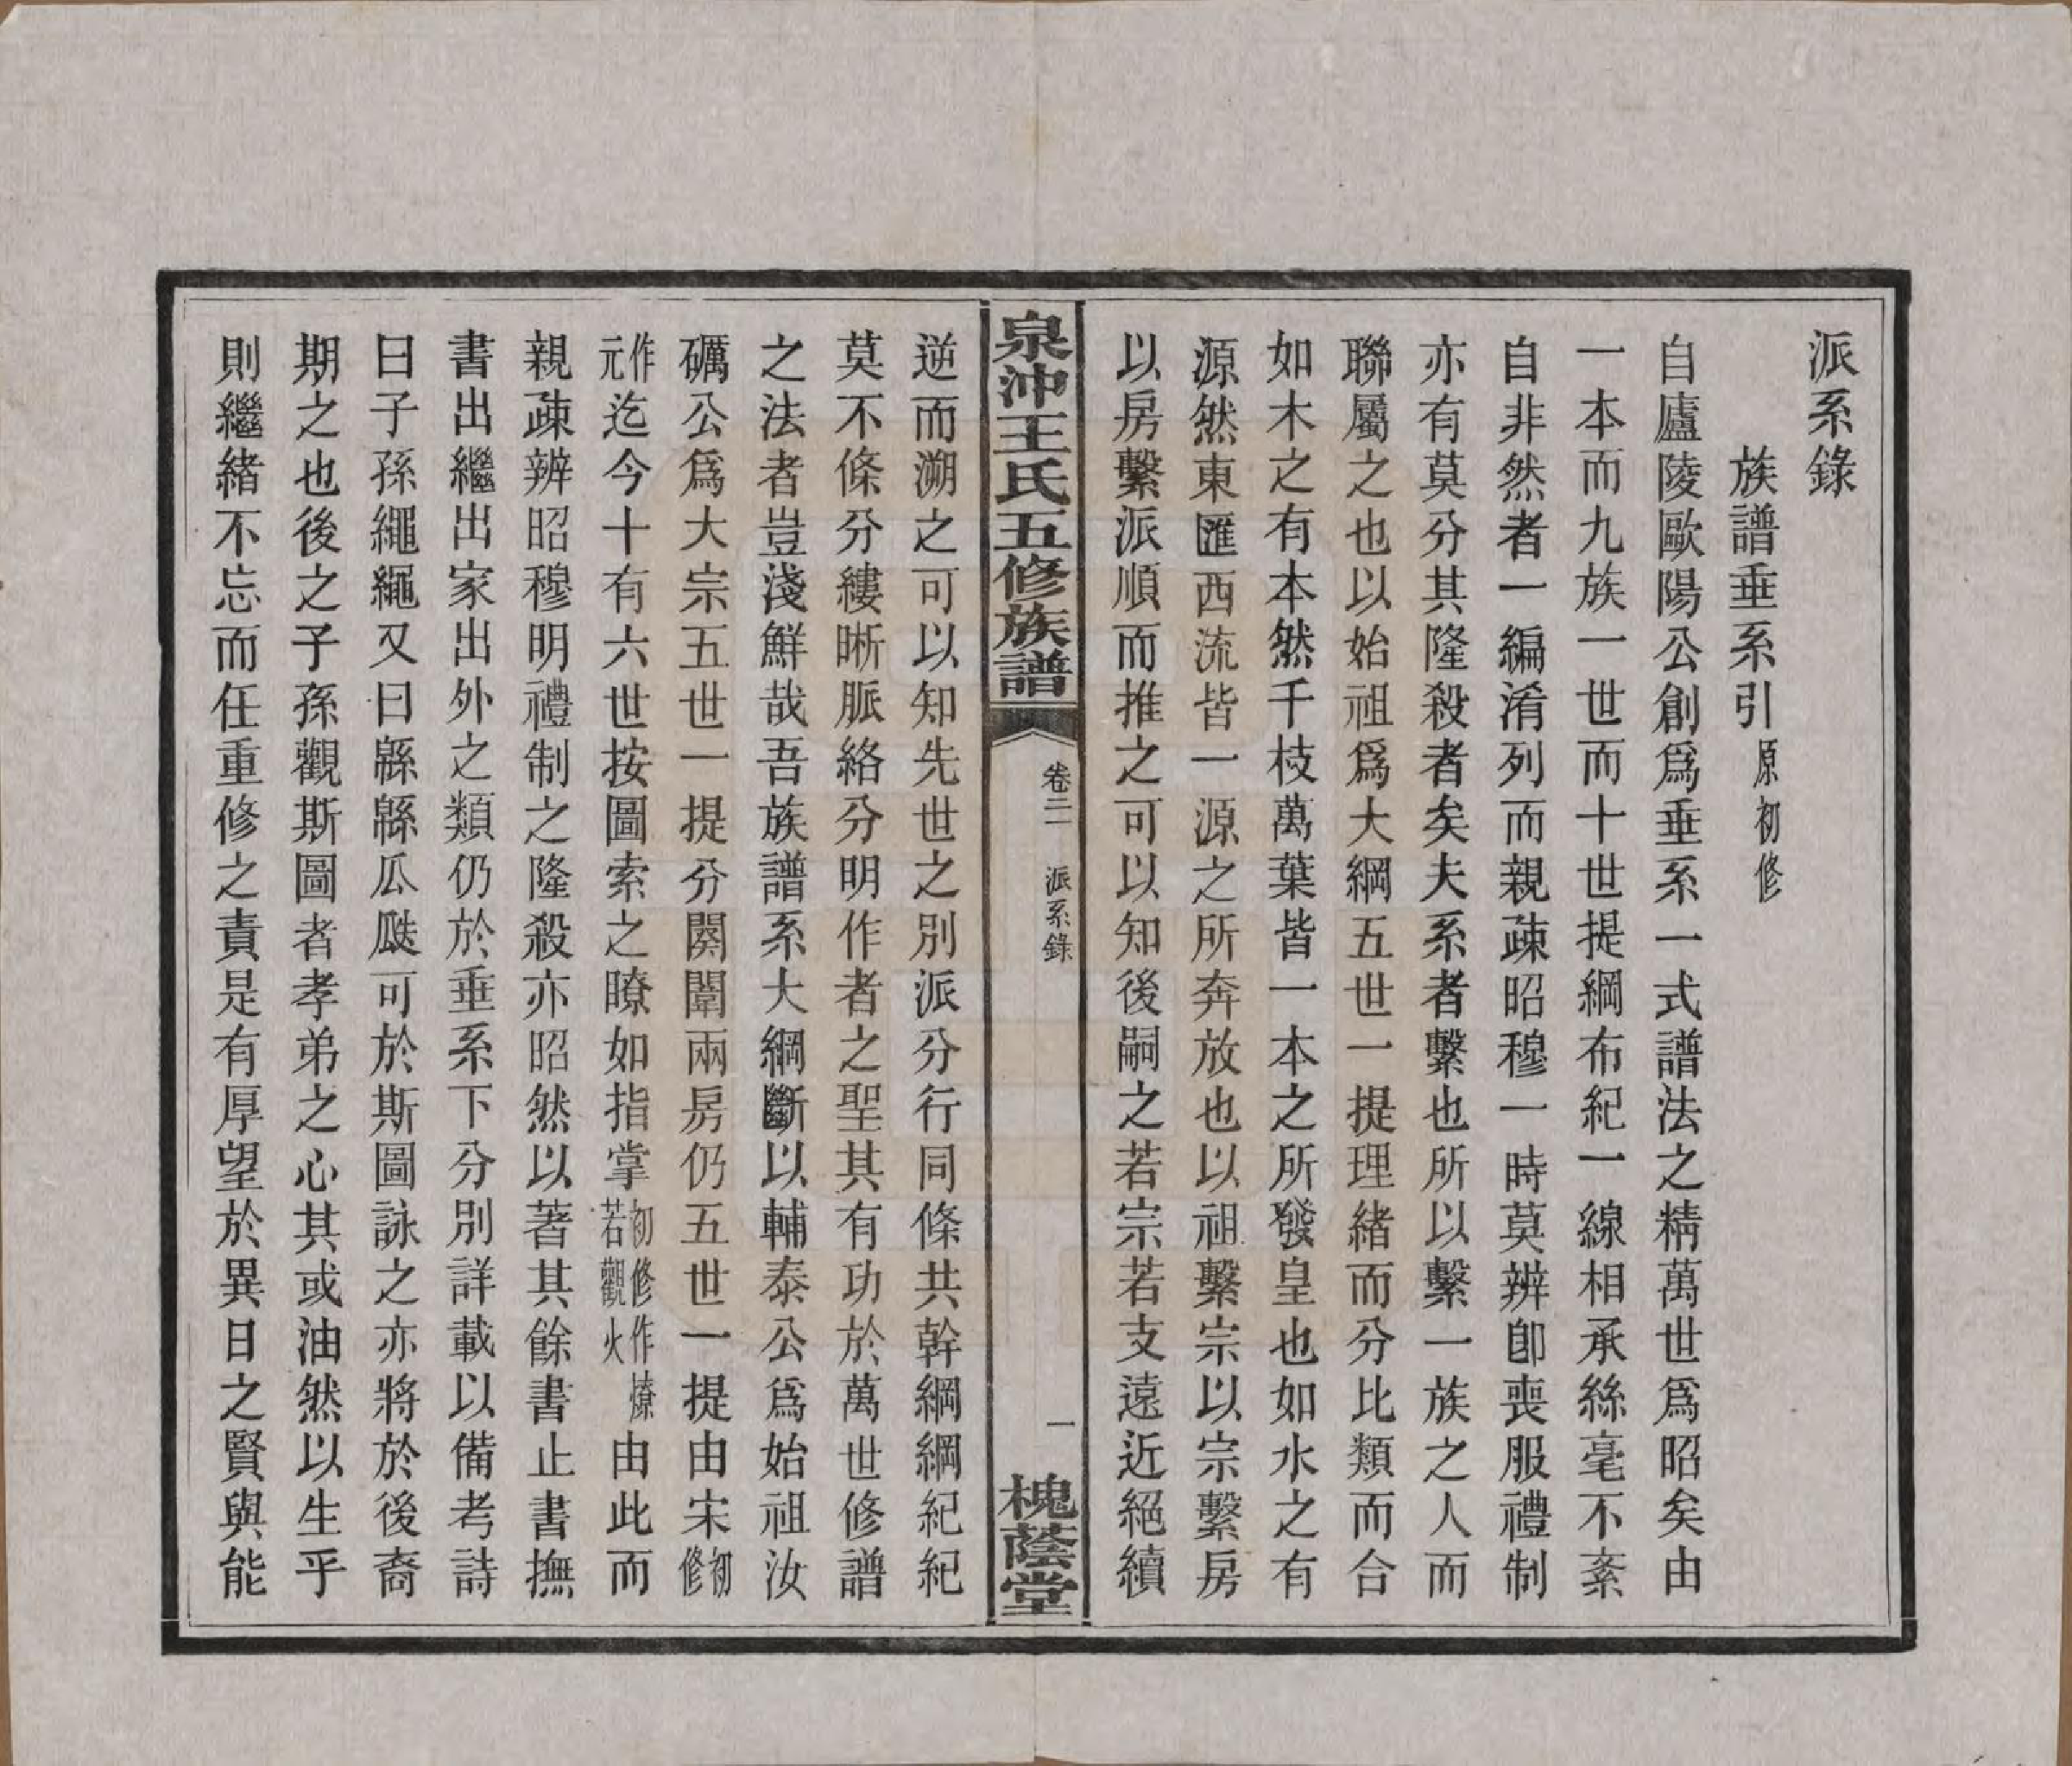 派系錄
族譜垂系引原初修
自廬陵歐陽公創爲垂系一式譜法之精萬世爲昭矣由
一本而九族一世而十世提綱布紀一線相承絲毫不紊
自非然者一編淆列而親疎昭穆一時莫辨卽喪服禮制
亦有莫分其隆殺者矣夫系者繫也所以繫一族之人而
聯屬之也以始祖爲大綱五世一提理緒而分比類而合
如木之有本然千枝萬葉皆一本之所發皇也如水之有
源然東匯西流皆一源之所奔放也以祖繫宗以宗繫房
以房繫派順而推之可以知後嗣之若宗若支遠近絕續
泉沖王氏五修族譜 卷二 派系錄 一 槐蔭堂
逆而溯之可以知先世之別派分行同條共幹綱綱紀紀
莫不條分縷晰脈絡分明作者之聖其有功於萬世修譜
之法者豈淺鮮哉吾族譜系大綱斷以輔泰公爲始祖汝
礪公爲大宗五世一提分闋闈兩房仍五世一提由宋初修
作元迄今十有六世按圖索之瞭如指掌初修作燎若觀火由此而
親疎辨昭穆明禮制之隆殺亦昭然以著其餘書止書撫
書出繼出家出外之類仍於垂系下分別詳載以備考詩
曰子孫繩繩又曰緜緜瓜瓞可於斯圖詠之亦將於後裔
期之也後之子孫觀斯圖者孝弟之心其或油然以生乎
則繼緒不忘而任重修之責是有厚望於異日之賢與能